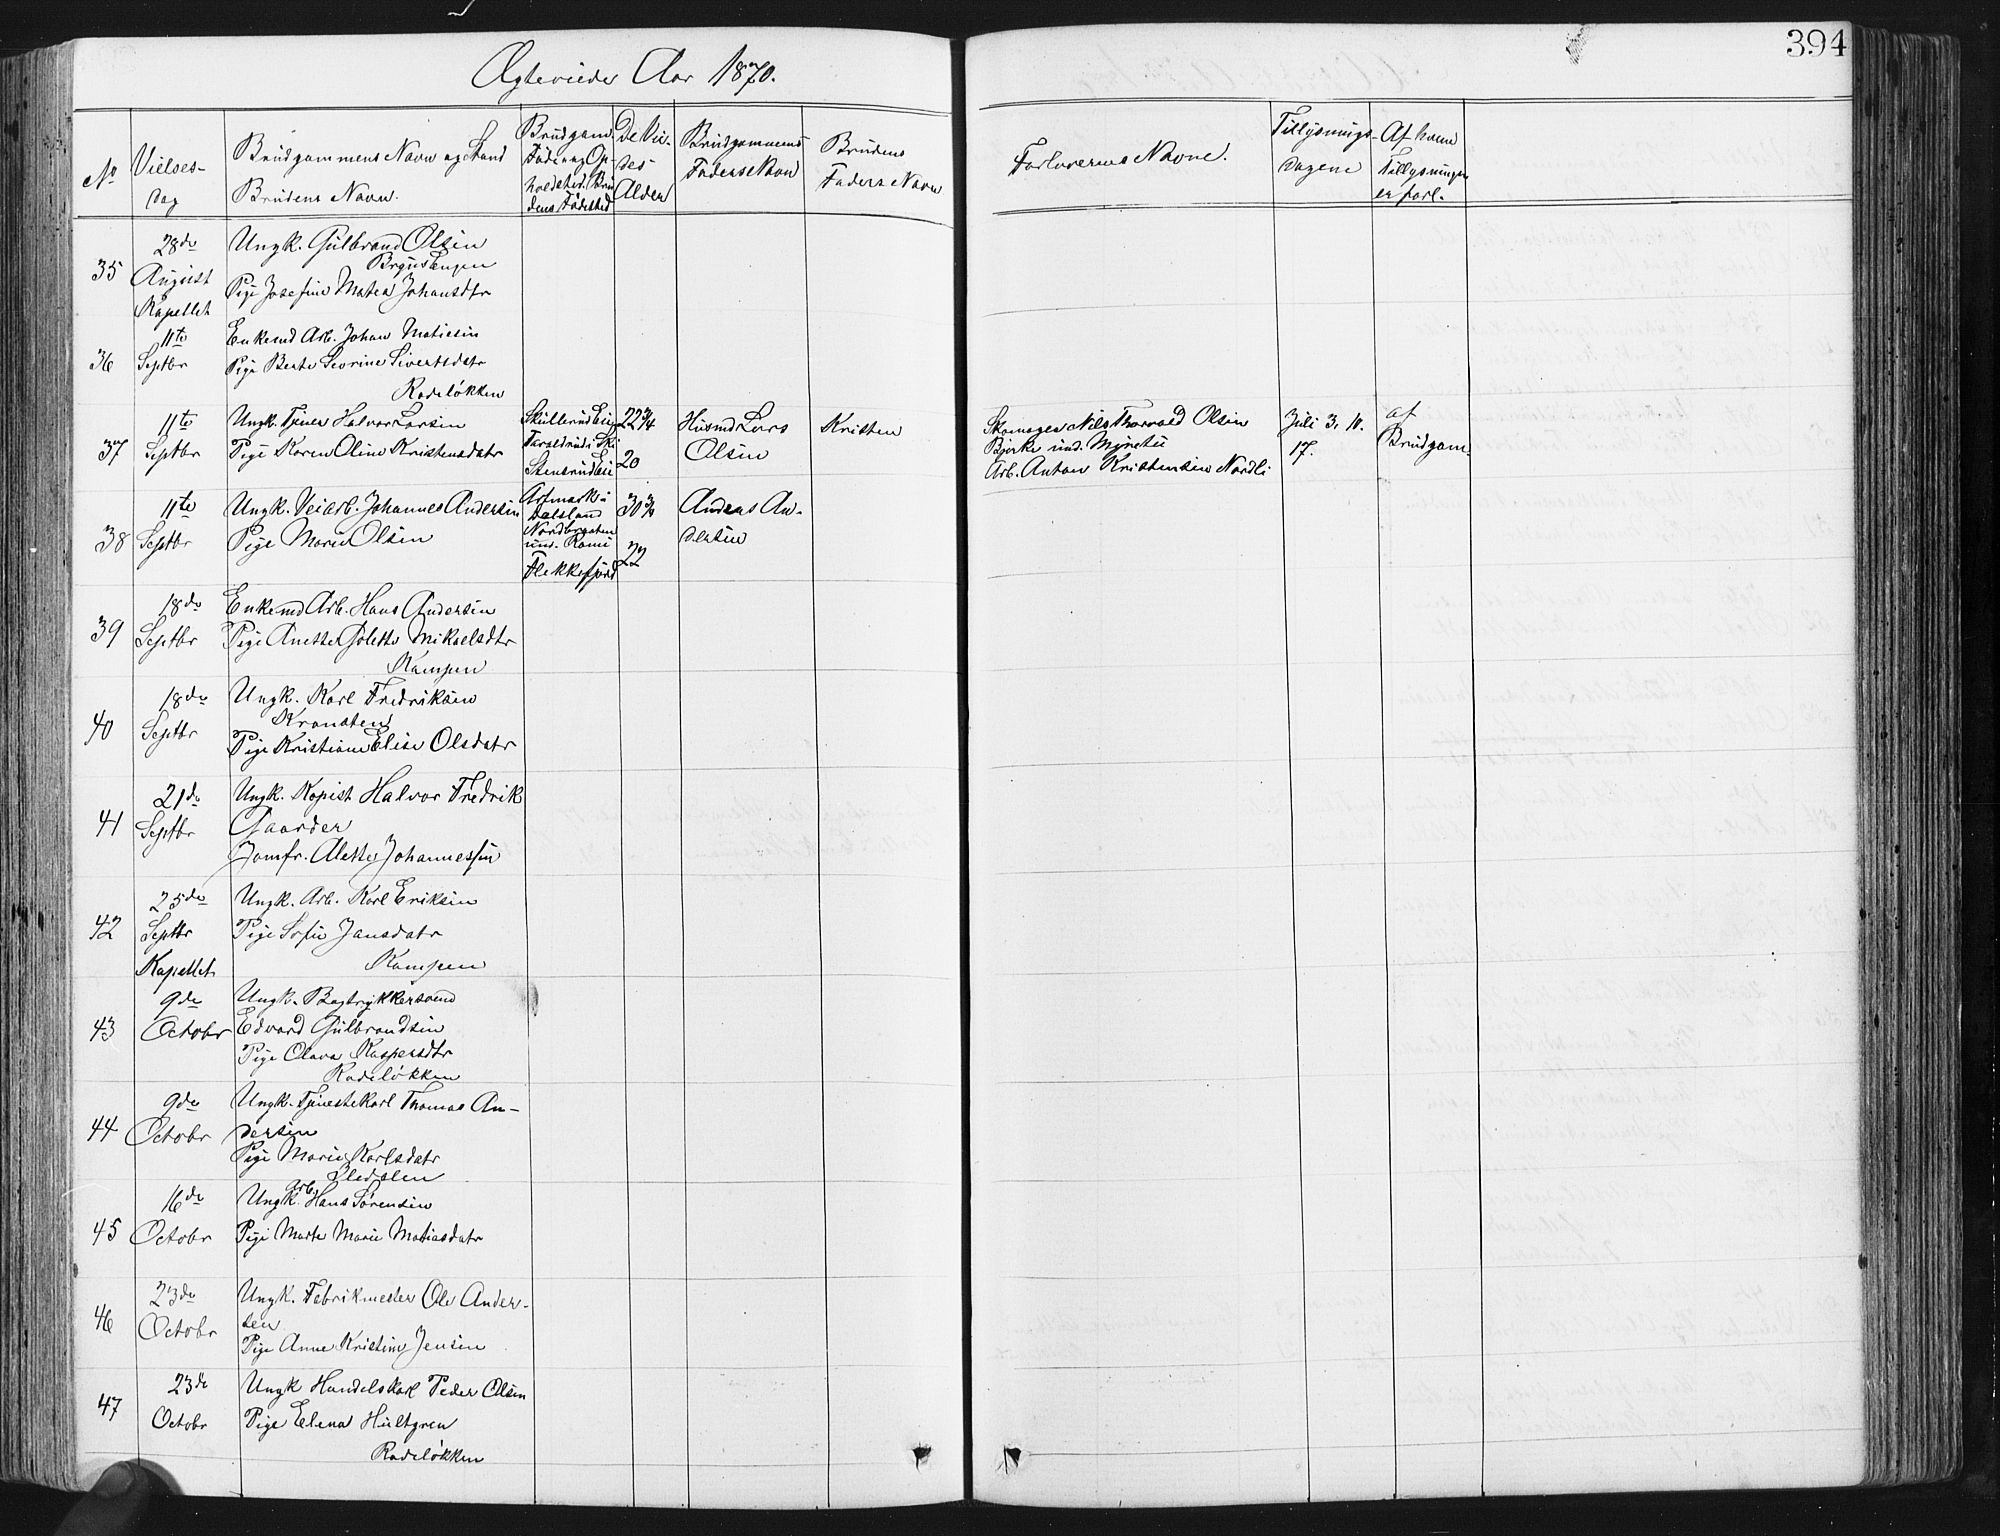 394
Ægteviede Aar 1870.
No
Vielses-
dag
Brudgommens Navn og Stand
Brudens Navn.
Brudgom.
Føde og Op-
holdsted. Bru
dens Fødested
De Vie-
des
Alder
Brudgommens
Faders Navn
Brudens
Faders Navn
Forlovernes Navne.
Tillysnings-
dagene
Af hvem
Tillysningen
er forl.
35
28de
August
Kapellet
Ungk. Gulbrand Olsen
Pige Josefine Matea Johansdtr
36
11te
Septbr
Enkemd Arb. Johan Matiesen
Pige Berte Severine Sivertsdatr
Rodeløkken
37
11te
Septbr
Ungk. Tjener Halvor Larsen
Pige Karen Oline Kristensdatr
Skullerud Eie
Taraldrud i Ski
Stensrud Eie
22 3/4
20
Husmd Lars
Olsen
Kristen
Skomager Nils Thorvald Olsen
Bjerke und. Myretie
Arb. Anton Kristensen Nordli
Juli 3, 10.
17.
af
Brudgom.
38
11te
Septbr
Ungk. Veiarb. Johannes Andersen
Pige Marie Olsen
Artmark i
Dalsland
Nordbrygaten
und.
Flekkefjord
30 3/4
22
Andreas An-
dersen
39
18de
Septbr
Enkemd Arb. Hans Andersen
Pige Anette Golette Mikaelsdtr
Kampen
40
18de
Septbr
Ungk. Karl Fredriksen
Kronsten
Pige Kristiane Elise Olsdatr
41
21de
Septbr
Ungk. Kopist Halvor Fredrik
Gaarder
Jomfr. Alette Johannessen
42
25de
Septbr
Kapellet
Ungk. Arb. Karl Eriksen
Pige Sofie Jansdatr
Kampen
43
9de
Octobr
Ungk. Bogtrykkersvend
Edvard Gulbrandsen
Pige Olava Kaspersdtr
Rodeløkken
44
9de
Octobr
Ungk. Tjenestekarl Thomas An-
dersen
Pige Marie Karlsdatr
45
16de
Octobr
Ungk. Arb. Hans Sørensen
Pige Marte Marie Matiasdatr
46
23de
Octobr
Ungk. Fabrikmester Ole Ander-
sen
Pige Anne Kristine Jensen
47
23de
Octobr
Ungk Handelskarl Peder Olsen
Pige Elena Hultgren
Rodeløkken